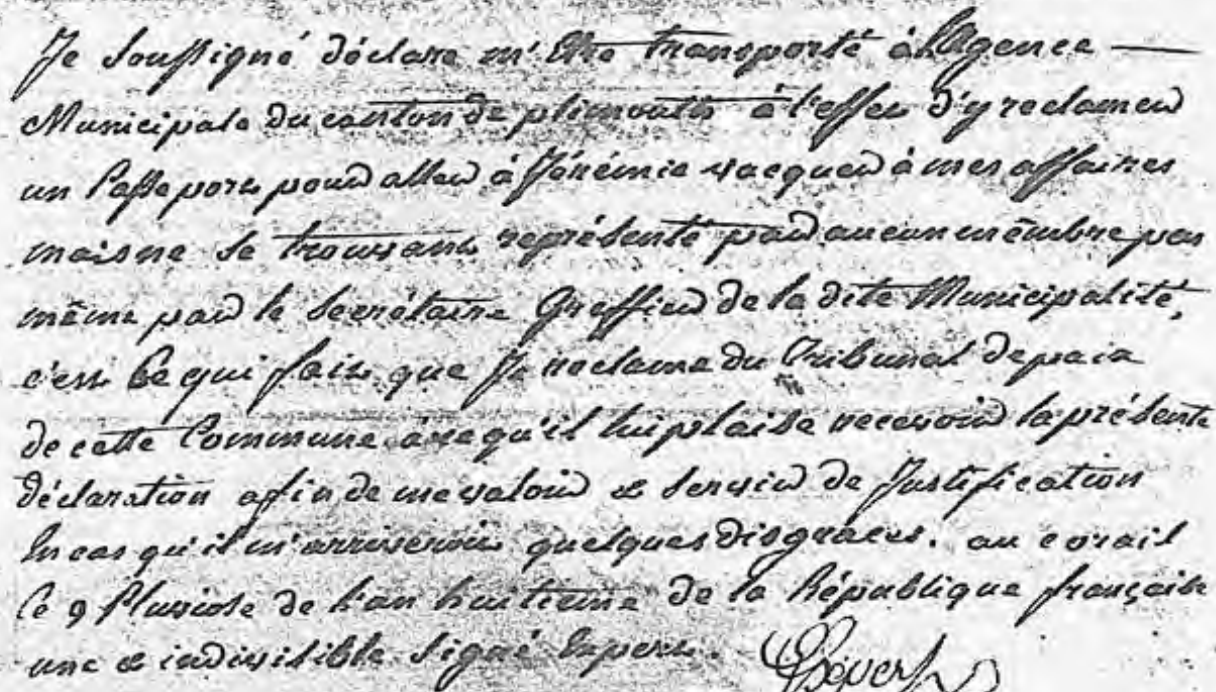 Je Soussigné déclare m'être transporté à l'Agence
Municipale du canton de plimoutn à l'effet d'y reclamer
un Passeport pour aller à Jérémie vacquer à mes affaires
mais ne se trouvant représenté par aucun mêmbre pas
même par le secrétaire Greffier de la dite Municipalité,
c'est ce qui fait que Je reclame du Tribunal de paix
de cette Commune à ce qu'il lui plaise recevoir la présente
déclaration afin de me valoir & servir de Justification
En cas qu'il m'arriveroit quelques disgraces. au corail
le 9 Pluviose de l'an huitieme de la République française
une & indivisible Signé Expert.